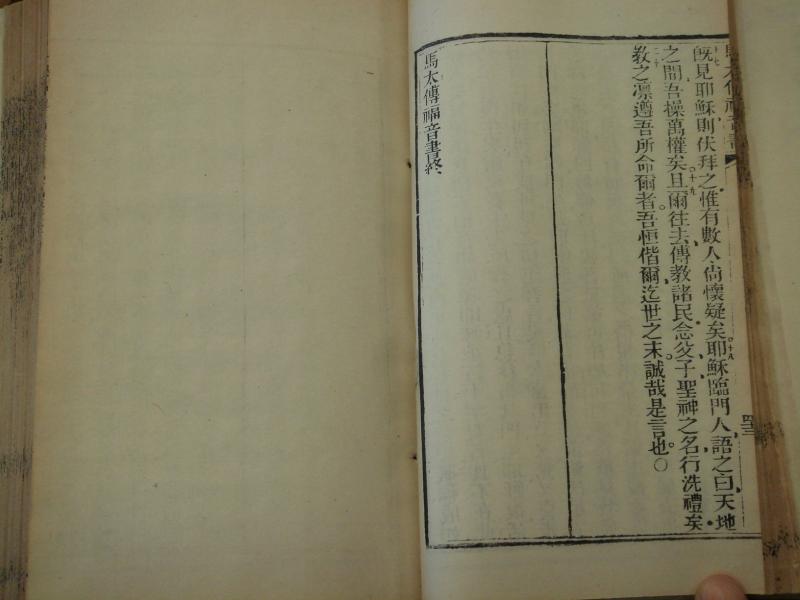 馬太傳福音書
十七
旣見耶穌則伏拜之惟有數人尙懷疑矣十八耶穌臨門人語之曰天地
之間吾操萬權矣十九且爾往去傳教諸民念父子聖神之名行洗禮矣
二十教之凛遵吾所命爾者吾恒偕爾迄世之末誠哉是言也〇
馬太傳福音書終